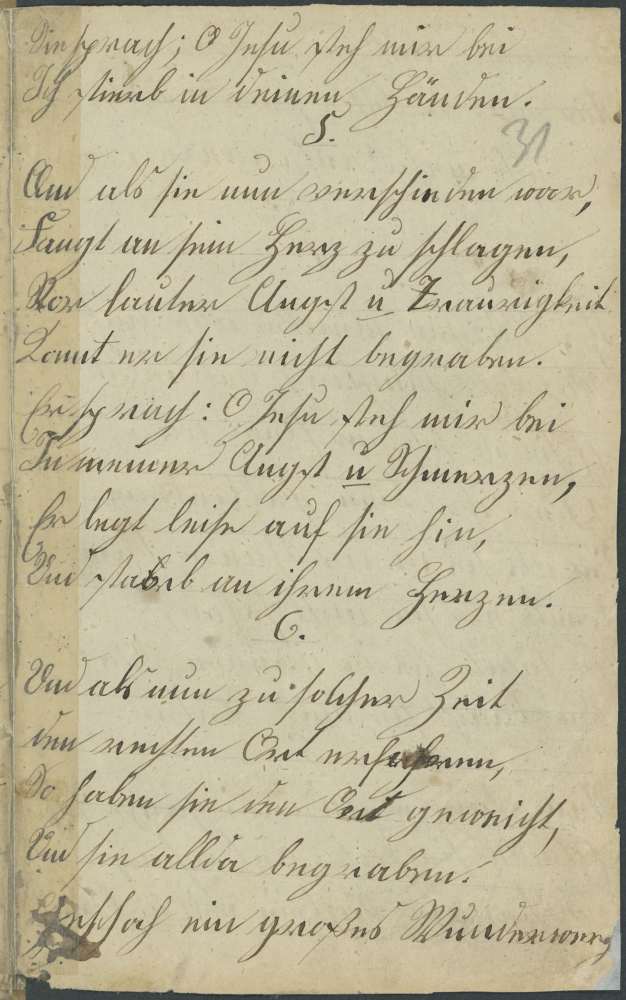 Sie sprach; O Jesu steh mir bei
Ich stierb in deinen Händen.
5.
31
Und als sie nun verschieden war,
Fangt an sein Herz zu schlagen,
Vor lauter Angst u Traurigkeit
Konnt er sie nicht begraben.
Er sprach: O Jesu steh mir bei
In meiner Angst u Schmerzen,
Er legt leise auf sie hin,
Und starb an ihrem Herzen.
6.
Und als nun zu solcher Zeit
den rechten Ort erfahren,
Da haben sie den Ort geweicht,
Und sie allda begraben.
Geschah ein großes Wunderwerg